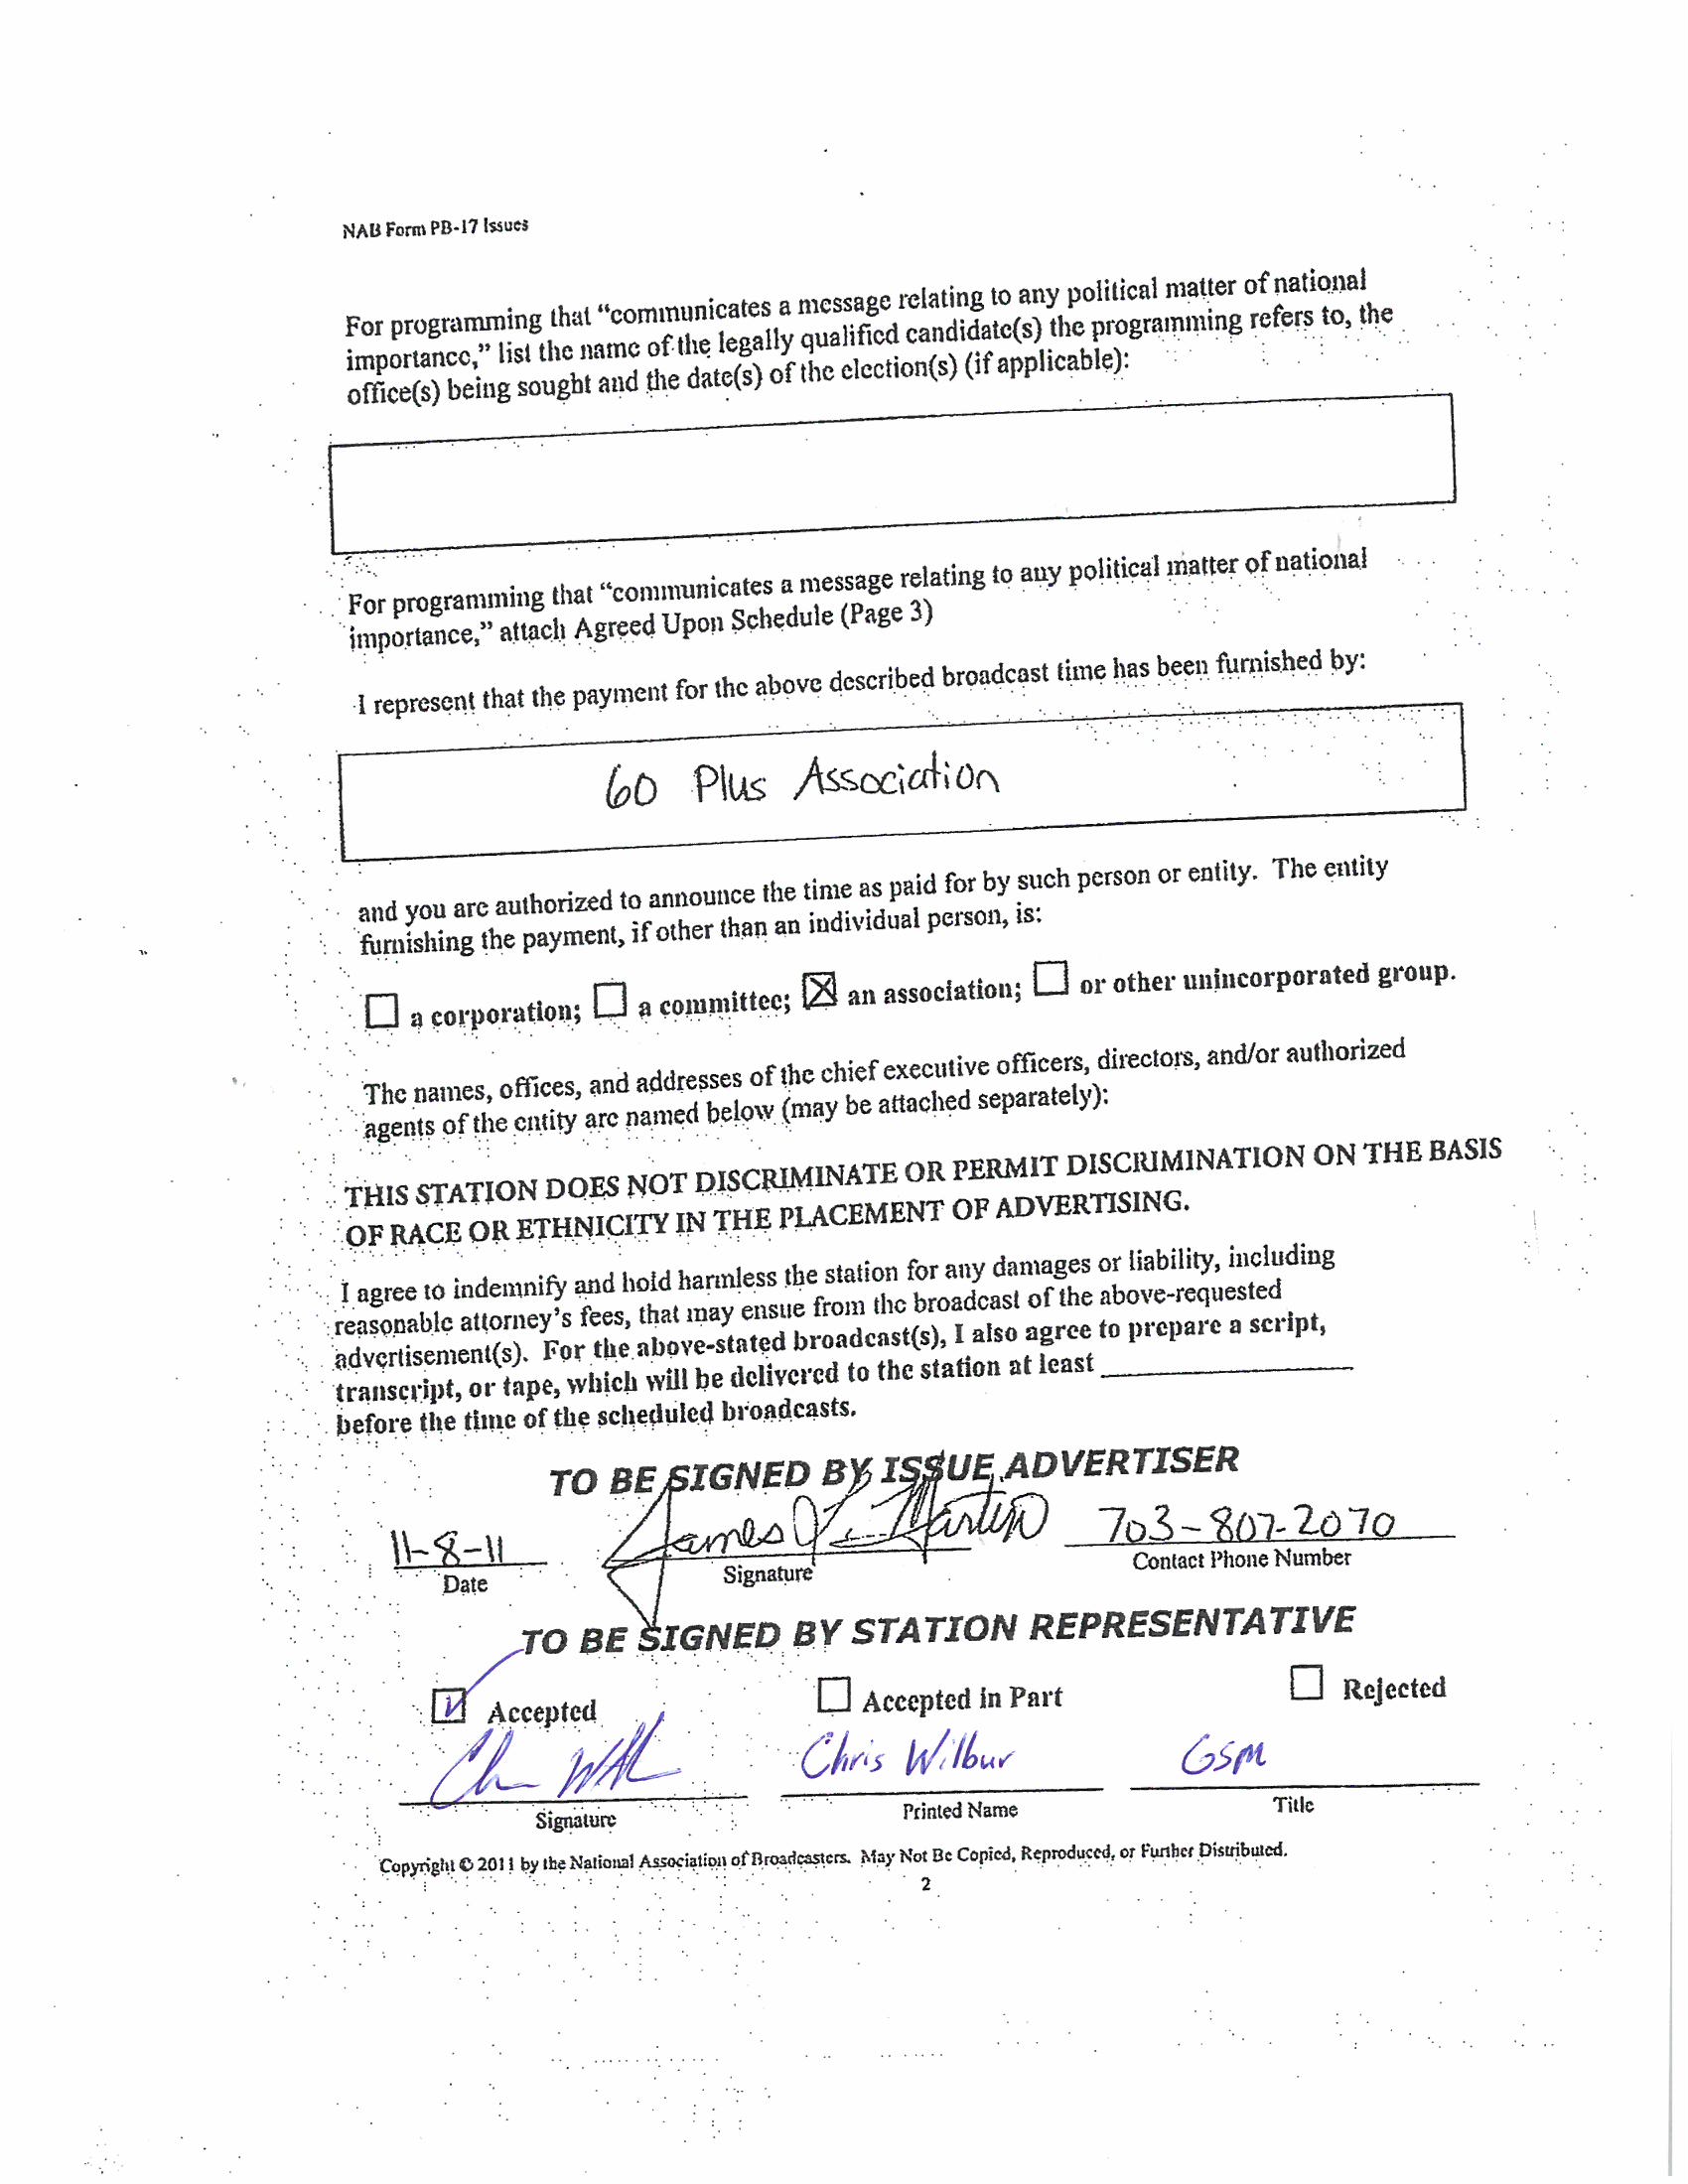 NAB Form PB-17 Issues
For programming that “communicates a message relating to any political matter of national
importance,” list the name of the legally qualified candidate(s) the programming refers to, the
office(s) being sought and the date(s) of the election(s) (if applicable):
For programming that “communicates a message relating to any political matter of national
importance,” attach Agreed Upon Schedule (Page 3)
I represent that the payment for the above described broadcast time has been furnished by:
60 Plus Association
and you are authorized to announce the time as paid for by such person or entity. The entity
furnishing the payment, if other than an individual person, is:
☐ a corporation; ☐ a committee; ☒ an association; ☐ or other unincorporated group.
The names, offices, and addresses of the chief executive officers, directors, and/or authorized
agents of the entity are named below (may be attached separately):
THIS STATION DOES NOT DISCRIMINATE OR PERMIT DISCRIMINATION ON THE BASIS
OF RACE OR ETHNICITY IN THE PLACEMENT OF ADVERTISING.
I agree to indemnify and hold harmless the station for any damages or liability, including
reasonable attorney’s fees, that may ensue from the broadcast of the above-requested
advertisement(s). For the above-stated broadcast(s), I also agree to prepare a script,
transcript, or tape, which will be delivered to the station at least
before the time of the scheduled broadcasts.
TO BE SIGNED BY ISSUE ADVERTISER
11-8-11 James L. Martin 703-807-2070
Date Signature Contact Phone Number
TO BE SIGNED BY STATION REPRESENTATIVE
☑ Accepted ☐ Accepted in Part ☐ Rejected
Chris Wilbur GSM
Signature Printed Name Title
Copyright © 2011 by the National Association of Broadcasters. May Not Be Copied, Reproduced, or Further Distributed.
2